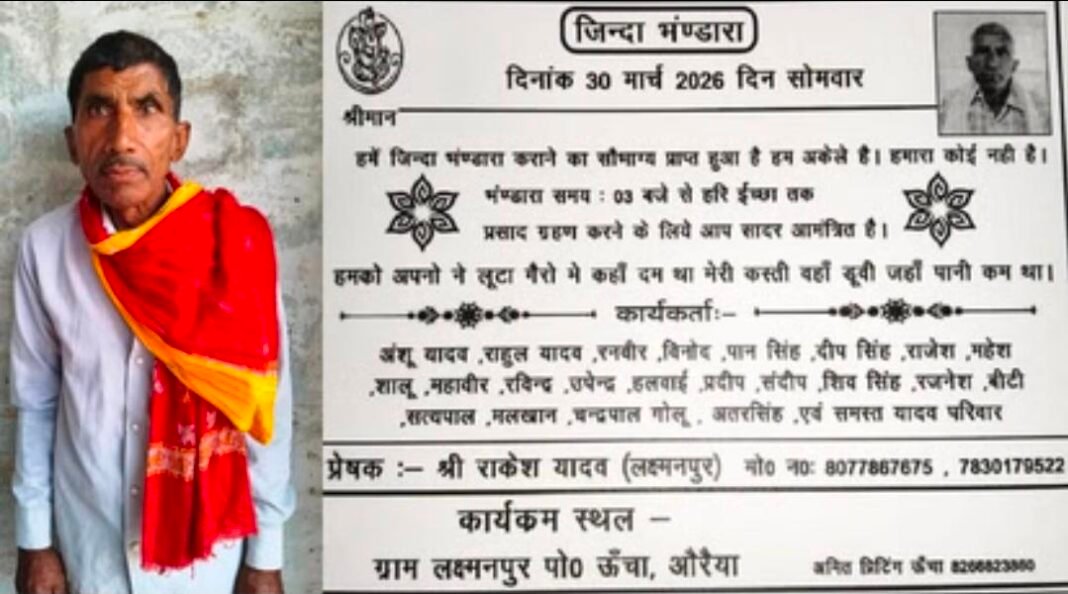 जिन्दा भंण्डारा
दिनांक 30 मार्च 2026 दिन सोमवार
श्रीमान
हमें जिन्दा भंण्डारा कराने का सौभाग्य प्राप्त हुआ है हम अकेले है। हमारा कोई नही है।
भंण्डारा समय : 03 बजे से हरि ईच्छा तक
प्रसाद ग्रहण करने के लिये आप सादर आमंत्रित है।
हमको अपनो ने लूटा गैरो मे कहाँ दम था मेरी कस्ती वहाँ डूवी जहाँ पानी कम था।
कार्यकर्ताः-
अंशू यादव ,राहुल यादव ,रनवीर ,विनोद ,पान सिंह ,दीप सिंह ,राजेश ,महेश
,शालू ,महावीर ,रविन्द्र ,उपेन्द्र ,हलवाई ,प्रदीप ,संदीप ,शिव सिंह ,रजनेश ,बीटी
,सत्यपाल ,मलखान ,चन्द्रपाल गोलू , अतरसिंह ,एवं समस्त यादव परिवार
प्रेषक :– श्री राकेश यादव (लक्ष्मनपुर) मो0 न0: 8077867675 , 7830179522
कार्यकम स्थल –
ग्राम लक्ष्मनपुर पो0 ऊँचा, औरैया
अमित प्रिटिंग ऊँचा